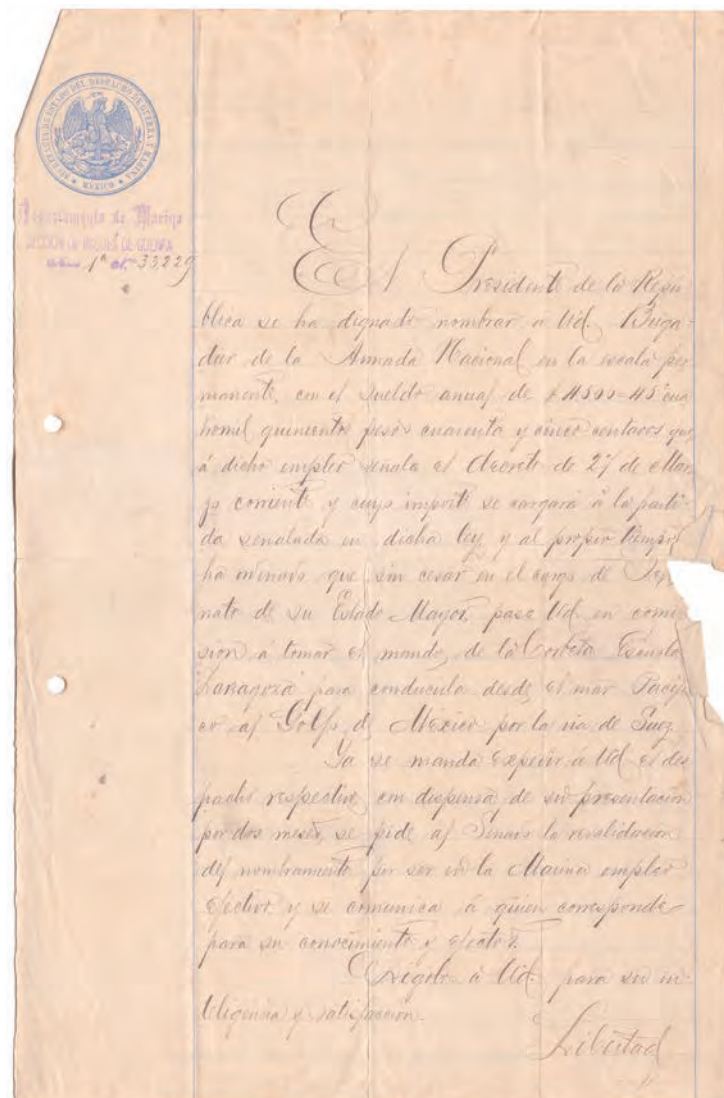 SECRETARIA DE ESTADO Y DEL DESPACHO DE GUERRA Y MARINA
MEXICO
Departamento de Marina
SECCION DE BUQUES DE GUERRA
1ª 33,229
El Presidente de la Repú-
blica se ha dignado nombrar á Ud. Briga-
dier de la Armada Nacional en la escala per-
manente, con el sueldo anual de $4.500=45 cua
tromil quinientos pesos cuarenta y cinco centavos que
á dicho empleo señala el Decreto de 27 de Mar
zo corriente y cuyo importe se cargará á la parti-
da señalada en dicha ley, y al propio tiempo
ha ordenado que sin cesar en el cargo de
nato de su Estado Mayor, pase Ud. en comi
sion á tomar el mando de la Corbeta Escuela
"Zaragoza" para conducirla desde el mar Pacífi
co al Golfo de México por la via de Suez.
Ya se manda expedir á Ud. el des
pacho respectivo con dispensa de su presentacion
por dos meses, se pide al Senado la revalidacion
del nombramiento por ser en la Marina empleo
efectivo y se comunica á quien corresponde
para su conocimiento y efectos.
Dígolo á Ud. para su in-
teligencia y satisfaccion.
Libertad